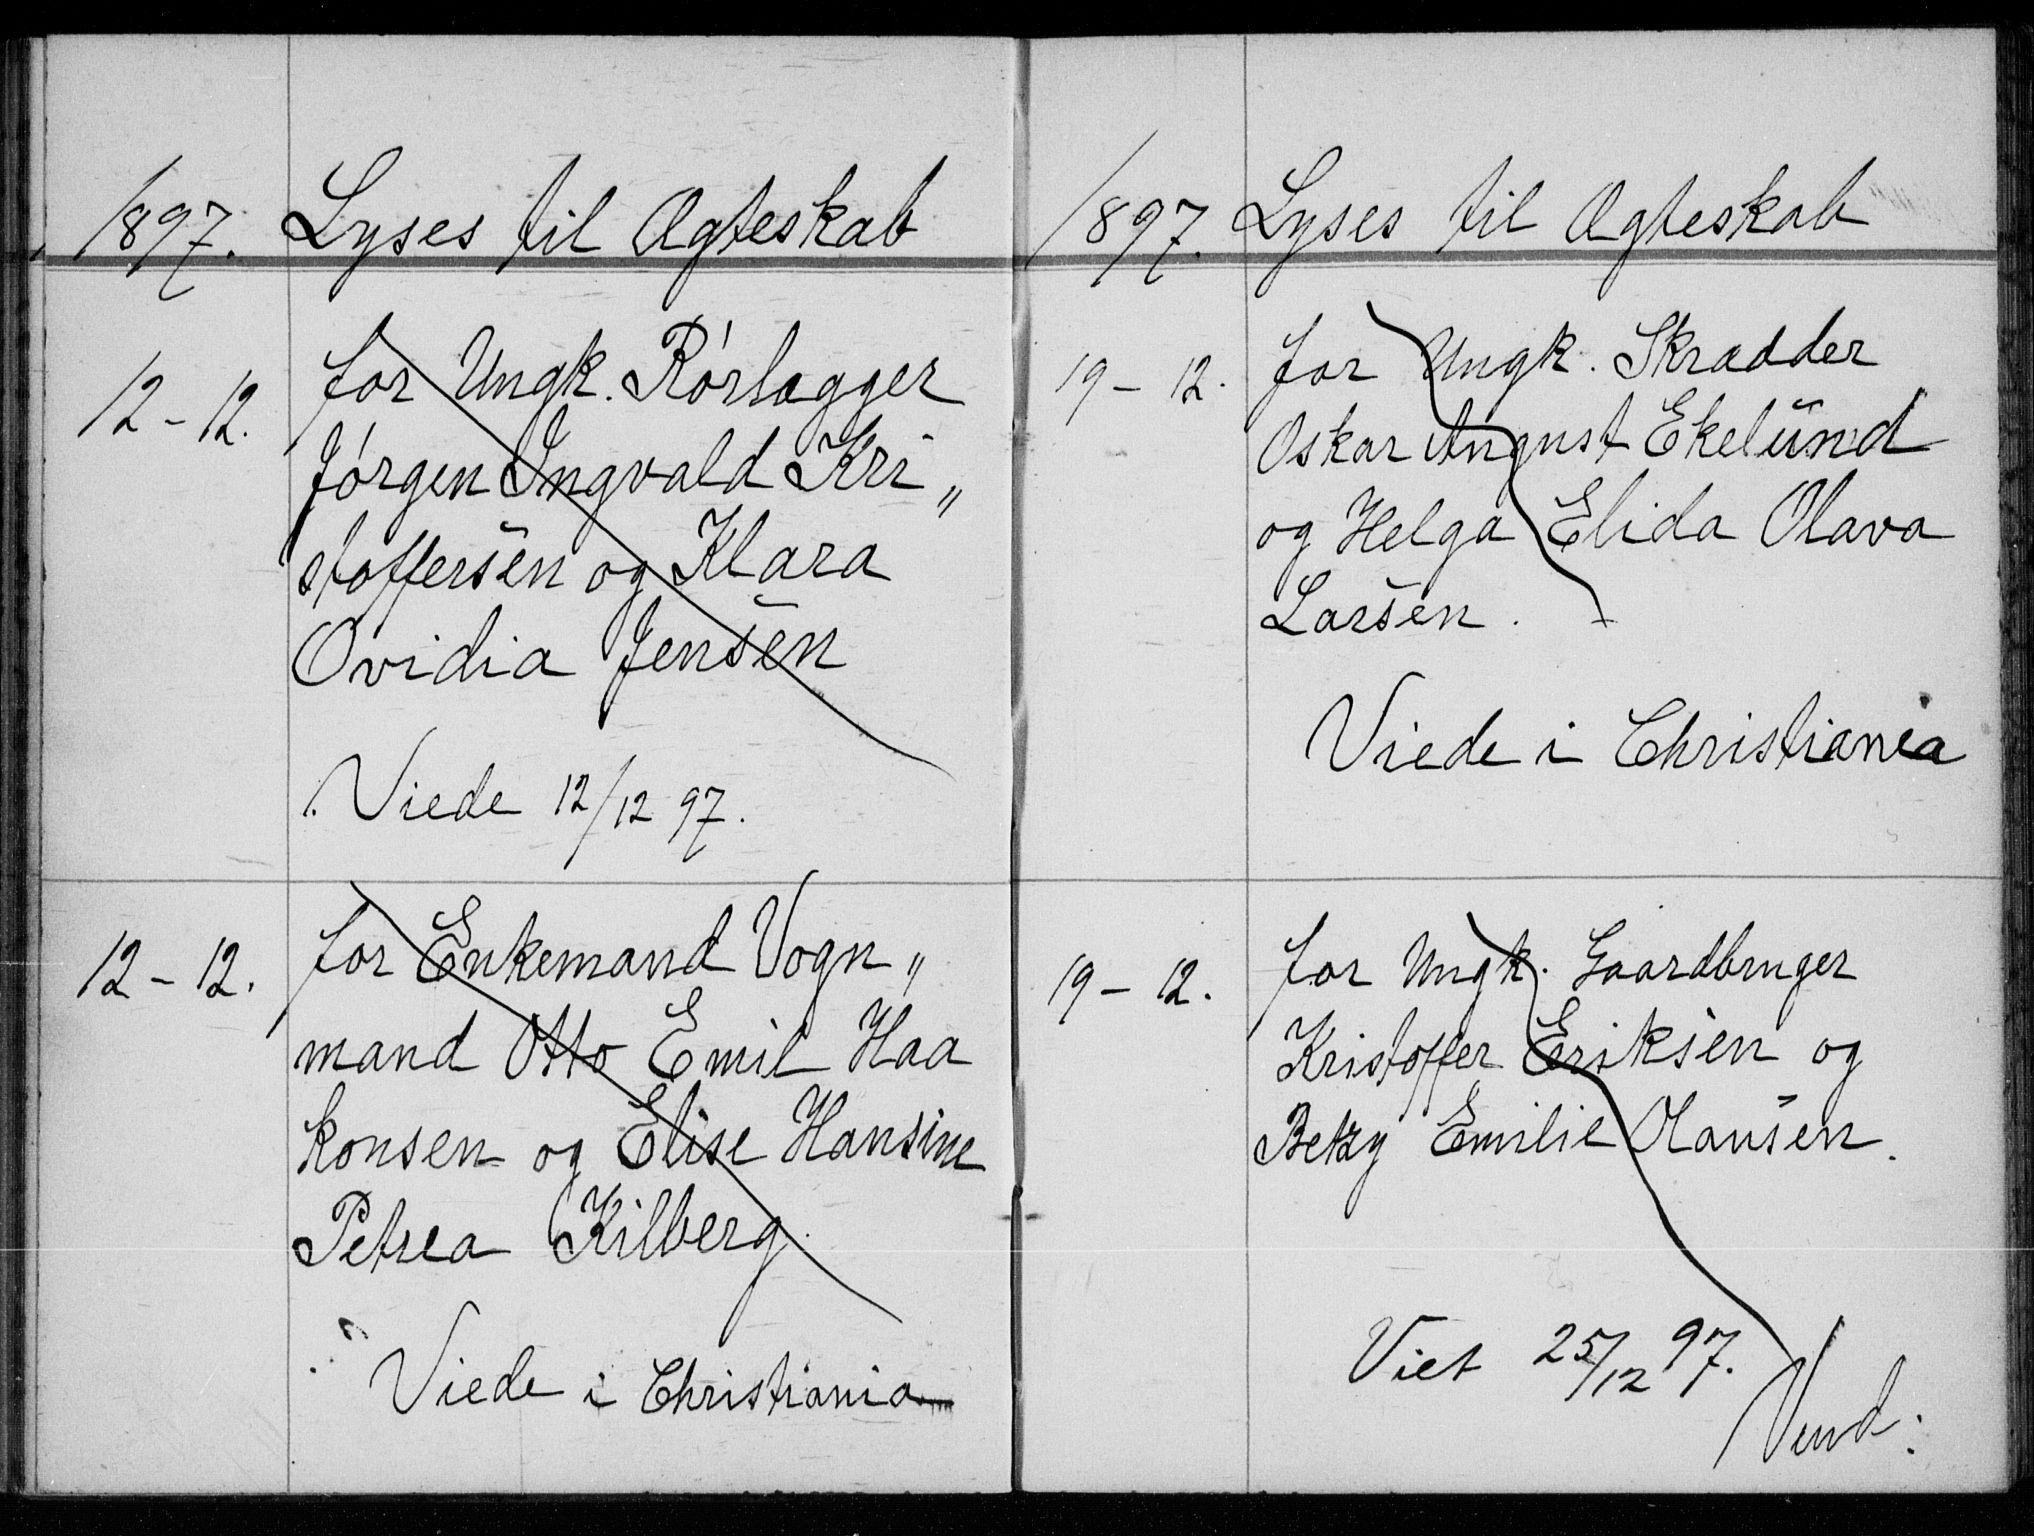 1897. Lyses til Ægteskab
12-12. for Ungk. Rórlægger
Jórgen Ingvald Kri„
stoffersen og Klara
Ovidia Jensen
Viede 12/12 97.
12-12. for Enkemand Vogn„
mand Otto Emil Haa
konsen og Elise Hansine
Petrea Kilberg.
Viede i Christiania
1897. Lyses til Ægteskab
19-12. for Ungk. Skrædder
Oskar August Ekelund
og Helga Elida Olava
Larsen.
Viede i Christiania
19-12. for Ungk. Gaardbruger
Kristoffer Eriksen og
Betzy Emilie Olausen.
Viet 25/12 97.
Vend: